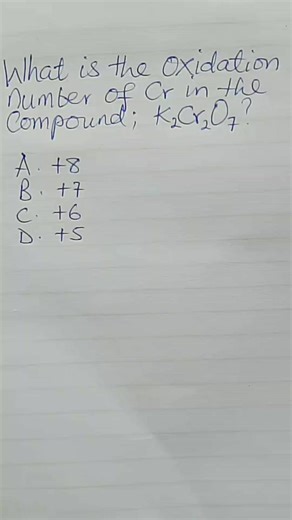 What is the Oxidation
number of Cr in the
Compound; K₂Cr₂O₇?
A. +8
B. +7
C. +6
D. +5